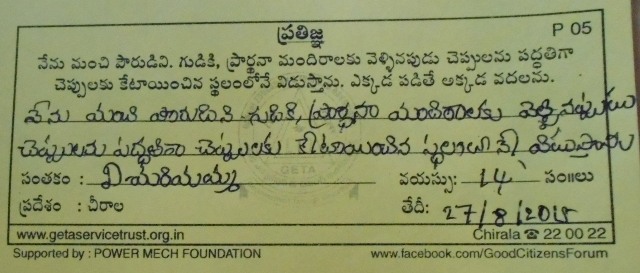 ప్రతిజ్ఞ
P 05
నేను మంచి పౌరుడిని. గుడికి, ప్రార్థనా మందిరాలకు వెళ్ళినపుడు చెప్పులను పద్ధతిగా
చెప్పులకు కేటాయించిన స్థలంలోనే విడుస్తాను. ఎక్కడ పడితే అక్కడ వదలను.
నేను మంచి పౌరుడిని గుడికి, ప్రార్థనా మందిరాలకు వెళ్ళినప్పుడు
చెప్పులను పద్ధతిగా చెప్పులకు కేటాయించిన స్థలంలోనే విడుస్తాను
సంతకం : వి మరియమ్మ వయస్సు: 14 సం॥లు
ప్రదేశం : చీరాల తేదీ: 27/8/2015
www.getaservicetrust.org.in Chirala ☎ 22 00 22
Supported by : POWER MECH FOUNDATION www.facebook.com/GoodCitizensForum
GETA